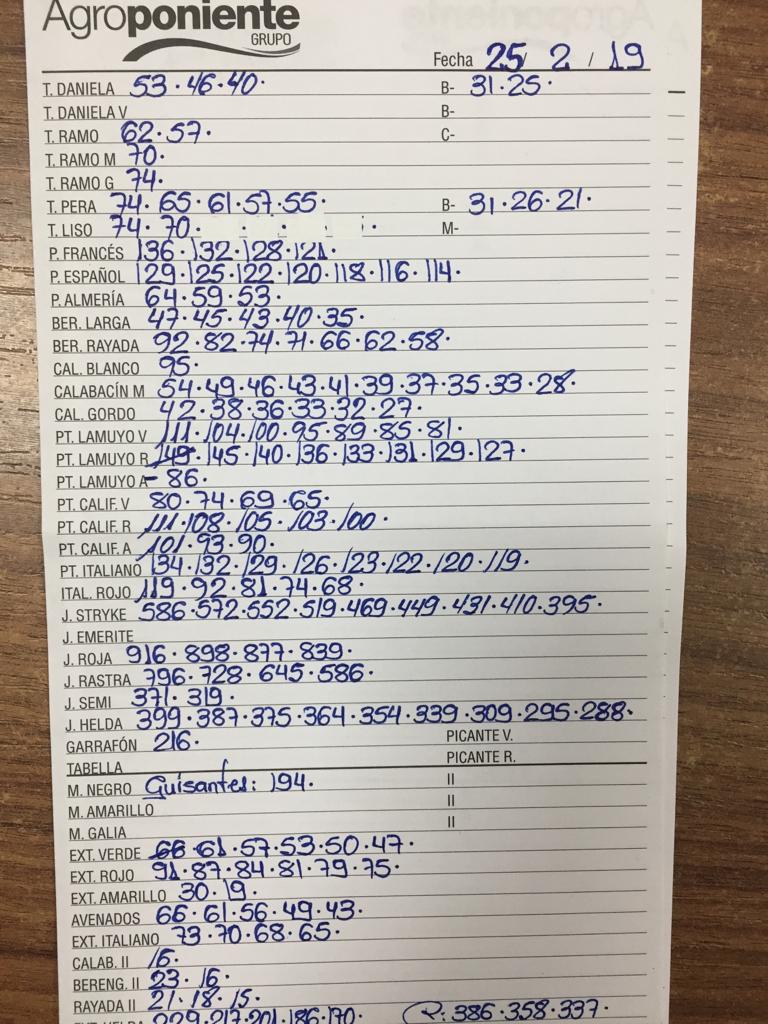 Agroponiente
GRUPO
Fecha 25/ 2 / 19
T. DANIELA 53·46·40· B- 31·25·
T. DANIELA V B-
T. RAMO 62·57· C-
T. RAMO M 70·
T. RAMO G 74·
T. PERA 74·65·61·57·55· B- 31·26·21·
T. LISO 74·70· M-
P. FRANCÉS 136·132·128·121·
P. ESPAÑOL 129·125·122·120·118·116·114·
P. ALMERÍA 64·59·53·
BER. LARGA 47·45·43·40·35·
BER. RAYADA 92·82·74·71·66·62·58·
CAL. BLANCO 95·
CALABACÍN M 54·49·46·43·41·39·37·35·33·28·
CAL. GORDO 42·38·36·33·32·27·
PT. LAMUYO V 111·104·100·95·89·85·81·
PT. LAMUYO R 149·145·140·136·133·131·129·127·
PT. LAMUYO A 86·
PT. CALIF. V 80·74·69·65·
PT. CALIF. R 111·108·105·103·100·
PT. CALIF. A 101·93·90·
PT. ITALIANO 134·132·129·126·123·122·120·119·
ITAL. ROJO 119·92·81·74·68·
J. STRYKE 586·572·552·519·469·449·431·410·395·
J. EMERITE
J. ROJA 916·898·877·839·
J. RASTRA 796·728·645·586·
J. SEMI 371·319·
J. HELDA 399·387·375·364·354·339·309·295·288·
GARRAFÓN 216· PICANTE V.
TABELLA PICANTE R.
M. NEGRO Guisantes: 194· II
M. AMARILLO II
M. GALIA II
EXT. VERDE 66 61·57·53·50·47·
EXT. ROJO 91·87·84·81·79·75·
EXT. AMARILLO 30·19·
AVENADOS 66·61·56·49·43·
EXT. ITALIANO 73·70·68·65·
CALAB. II 16·
BERENG. II 23·16·
RAYADA II 21·18·15·
EXT. HELDA 229·217·201·186·170· P: 386·358·337·